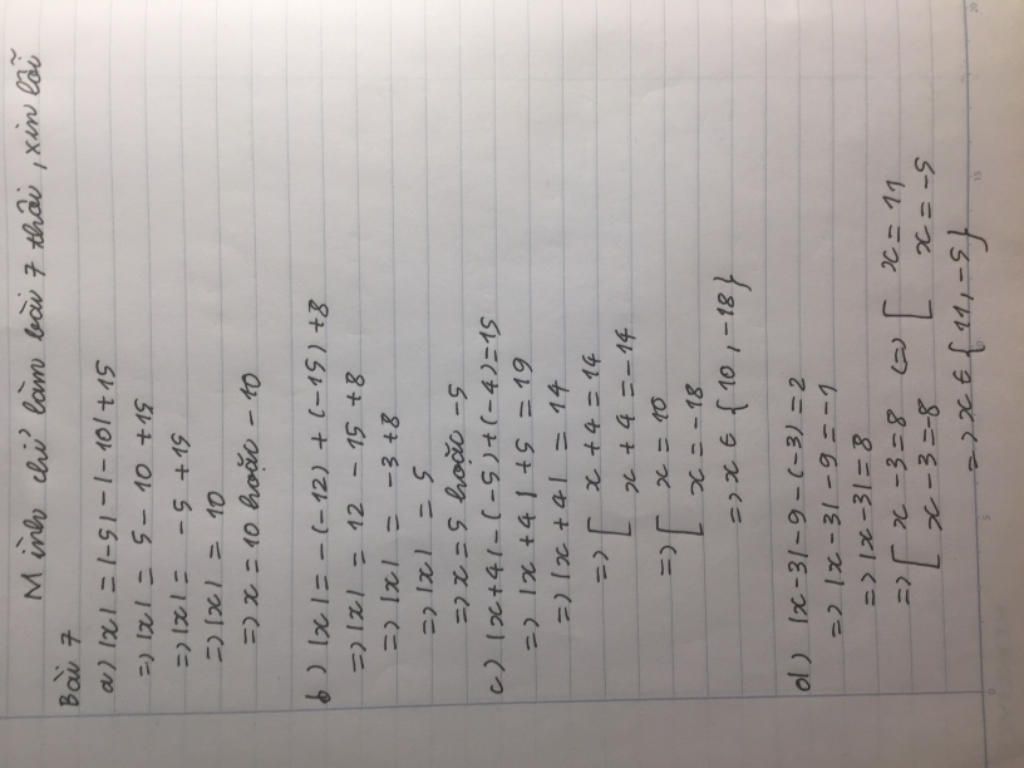 Mình chỉ làm bài 7 thôi, xin lỗi
Bài 7
a) |x| = |-5| - |-10| + 15
=> |x| = 5 - 10 + 15
=> |x| = -5 + 15
=> |x| = 10
=> x = 10 hoặc -10
b) |x| = -(-12) + (-15) + 8
=> |x| = 12 - 15 + 8
=> |x| = -3 + 8
=> |x| = 5
=> x = 5 hoặc -5
c) |x+4| - (-5) + (-4) = 15
=> |x+4| + 5 = 19
=> |x+4| = 14
=> [ x + 4 = 14
x + 4 = -14
=> [ x = 10
x = -18
=> x ∈ {10, -18}
d) |x-3| - 9 - (-3) = 2
=> |x-3| - 9 = -1
=> |x-3| = 8
=> [ x - 3 = 8 <=> [ x = 11
x - 3 = -8 x = -5
=> x ∈ {11, -5}